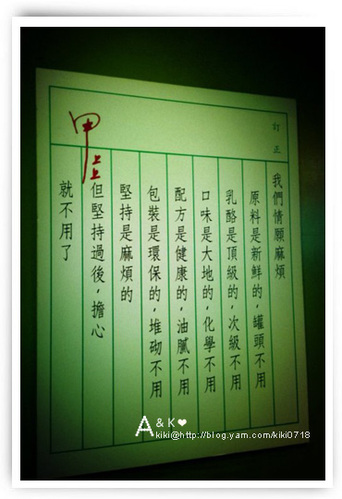 訂正
甲上上
我們情願麻煩
原料是新鮮的,罐頭不用
乳酪是頂級的,次級不用
口味是大地的,化學不用
配方是健康的,油膩不用
包裝是環保的,堆砌不用
堅持是麻煩的
但堅持過後,擔心
就不用了
A & K ❤
kiki@http://blog.yam.com/kiki0718